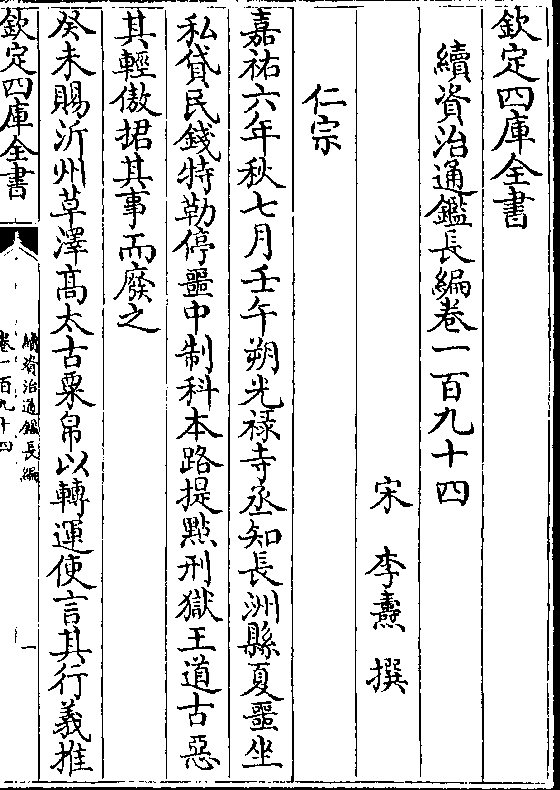 欽定四庫全書
續資治通鑑長編卷一百九十四
宋 李燾 撰
仁宗
嘉祐六年秋七月壬午朔光祿寺丞知長洲縣夏噩坐
私貸民錢特勒停噩中制科本路提點刑獄王道古惡
其輕傲捃其事而廢之
癸未賜沂州草澤髙太古粟帛以轉運使言其行義推
欽定四庫全書
續資治通鑑長編
卷一百九十四
一